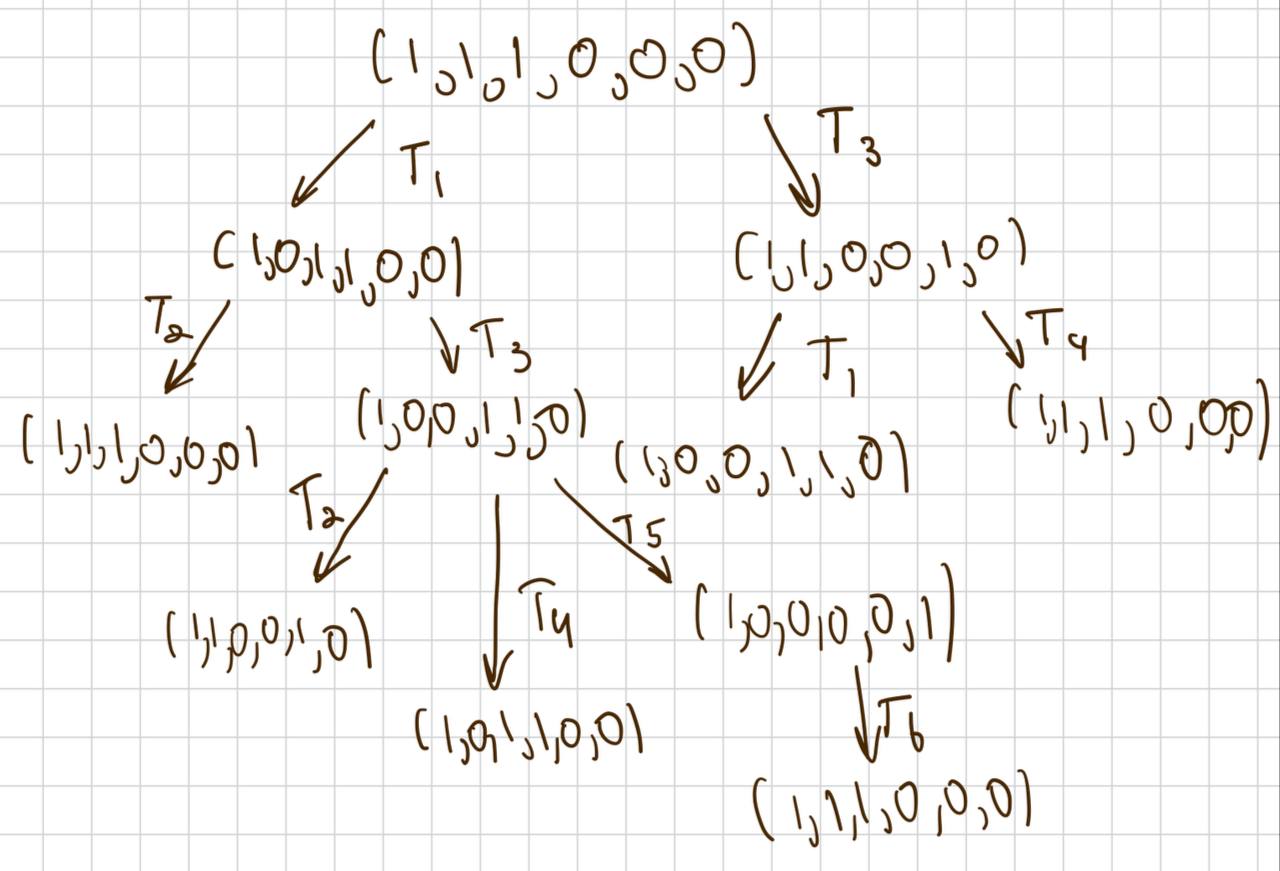 (1,1,1,0,0,0)
T1
T3
(1,0,1,1,0,0)
(1,1,0,0,1,0)
T2
T3
T1
T4
(1,1,1,0,0,0)
(1,0,0,1,1,0)
(1,0,0,1,1,0)
(1,1,1,0,0,0)
T2
T4
T5
(1,1,0,0,1,0)
(1,0,1,1,0,0)
(1,0,0,0,0,1)
T6
(1,1,1,0,0,0)